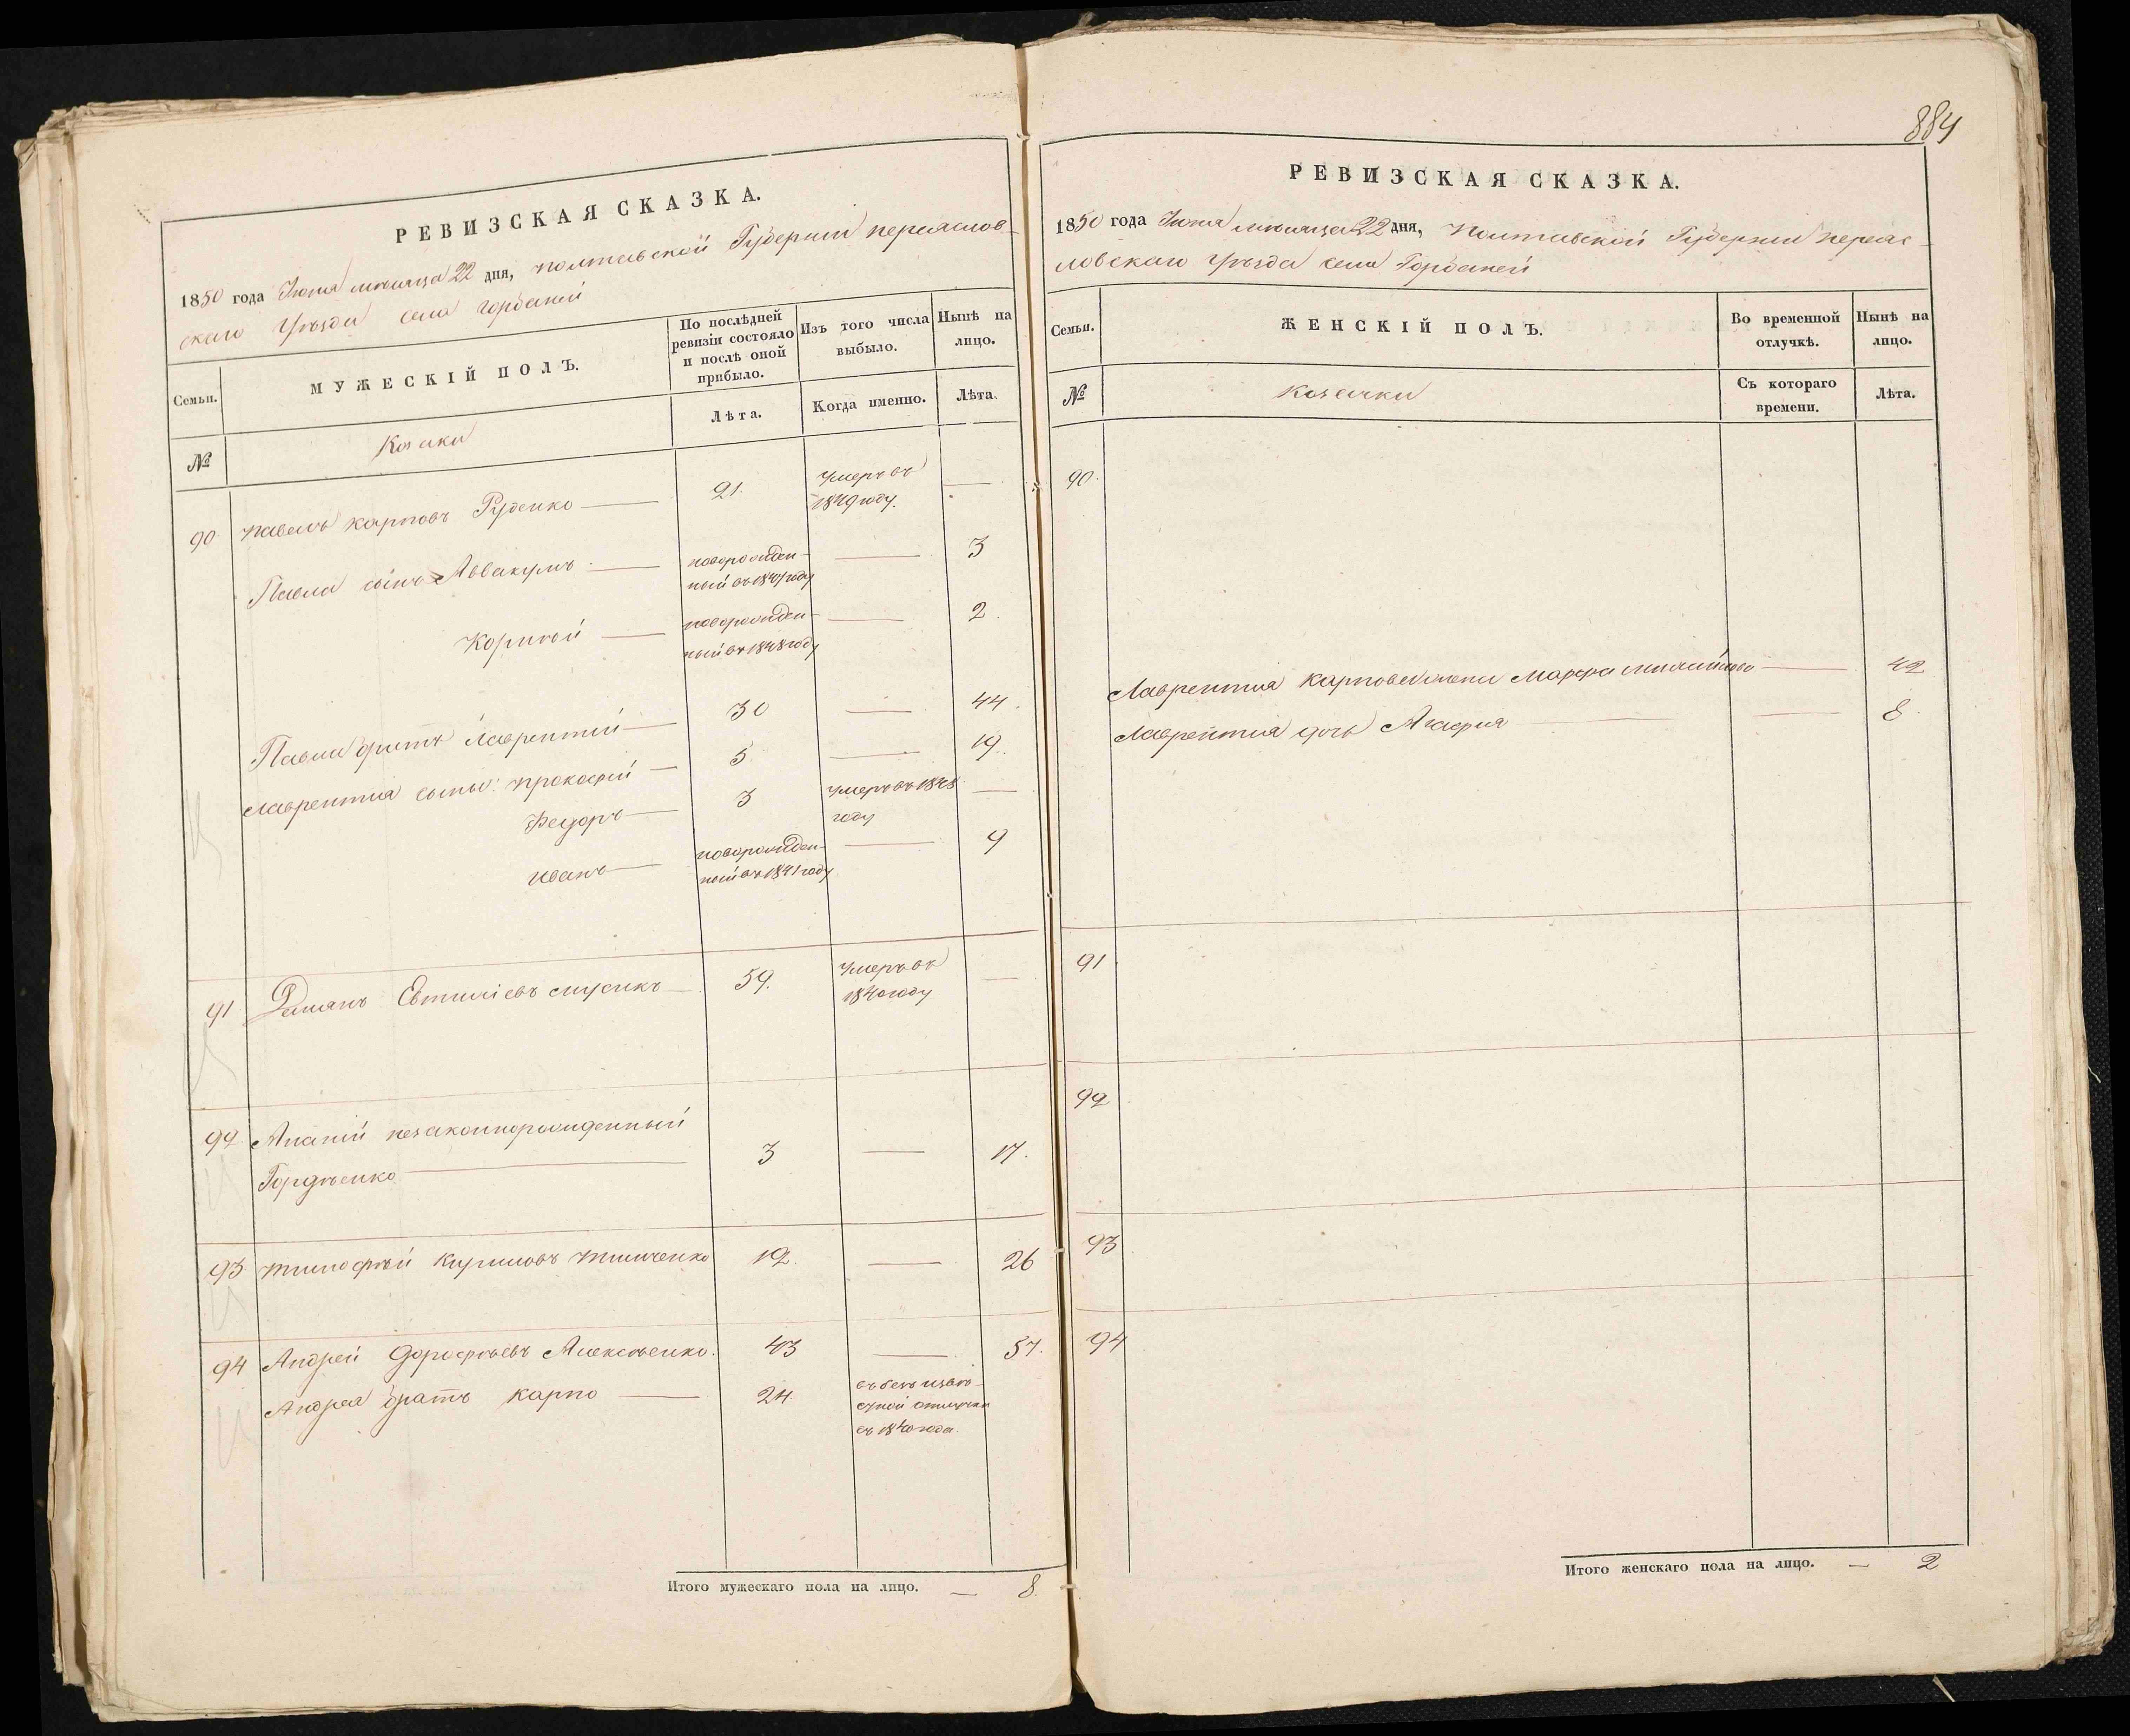 884
РЕВИЗСКАЯ СКАЗКА.
1850 года Іюня мѣсяца 22 дня, Полтавской Губерніи Переяслов-
скаго Уѣзда села Горбаней
Семьи.
МУЖЕСКІЙ ПОЛЪ.
По послѣдней
ревизіи состояло
и послѣ оной
прибыло.
Изъ того числа
выбыло.
Нынѣ на
лицо.
№
Козаки
Лѣта.
Когда именно.
Лѣта.
90 Павелъ Карповъ Руденко — 21. Умеръ въ —
1849 году.
Павла сынъ Аввакумъ — новорожден- — 3
ный въ 1847 году
Корнѣй — новорожден- — 2.
ный въ 1848 году
Павла братъ Лаврентій — 30 — 44.
Лаврентія сыны: Прокофій — 5 — 19.
Федоръ — 3 Умеръ въ 1848 —
году
Иванъ — новорожден- — 9
ный въ 1841 году
91 Романъ Евтихіевъ Мусикъ — 59. Умеръ въ —
1840 году
92 Ананій незаконнорожденный
Гордѣенко — 3 — 17.
93 Тимофѣй Кириловъ Тимченко 12. — 26
94 Андрей Дорофѣевъ Алексѣенко. 43 — 57.
Андрея братъ Карпо — 24 въ безъизвѣ-
стной отлучкѣ
съ 1840 года.
Итого мужескаго пола на лицо. — 8.
РЕВИЗСКАЯ СКАЗКА.
1850 года Іюня мѣсяца 22 дня, Полтавской Губерніи Переяс-
ловскаго Уѣзда села Горбаней
Семьи.
ЖЕНСКІЙ ПОЛЪ.
Во временной
отлучкѣ.
Нынѣ на
лицо.
№
Козачки
Съ котораго
времени.
Лѣта.
90.
Лаврентія Карпова жена Марфа Михайлова — 42
Лаврентія дочь Агафия — — 8.
91
92
93
94
Итого женскаго пола на лицо. — 2